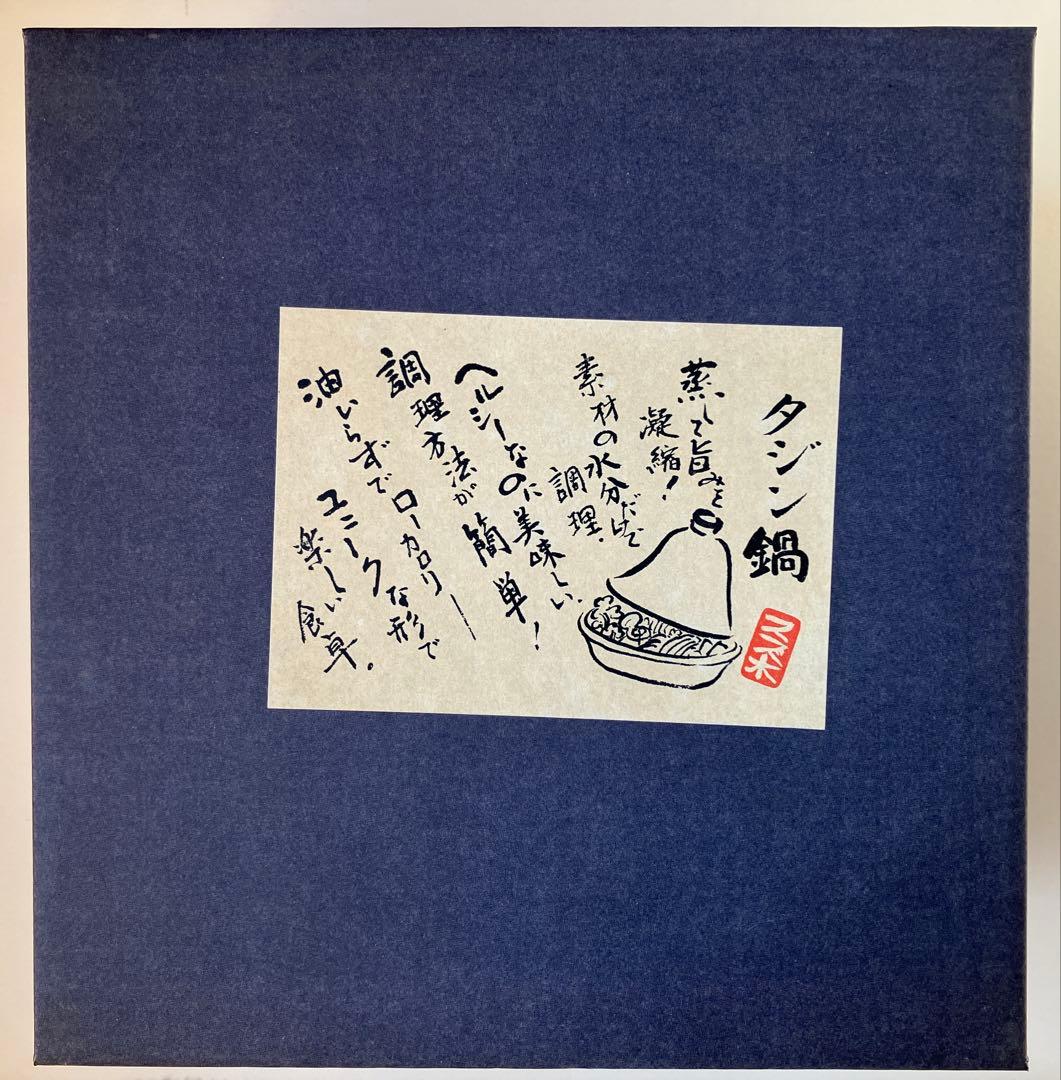 タジン鍋
蒸して旨みを
凝縮！
素材の水分だけで
調理。
ヘルシーなのに美味しい。
調理方法が簡単！
油いらずでローカロリー
ユニークな形で
楽しい食卓。